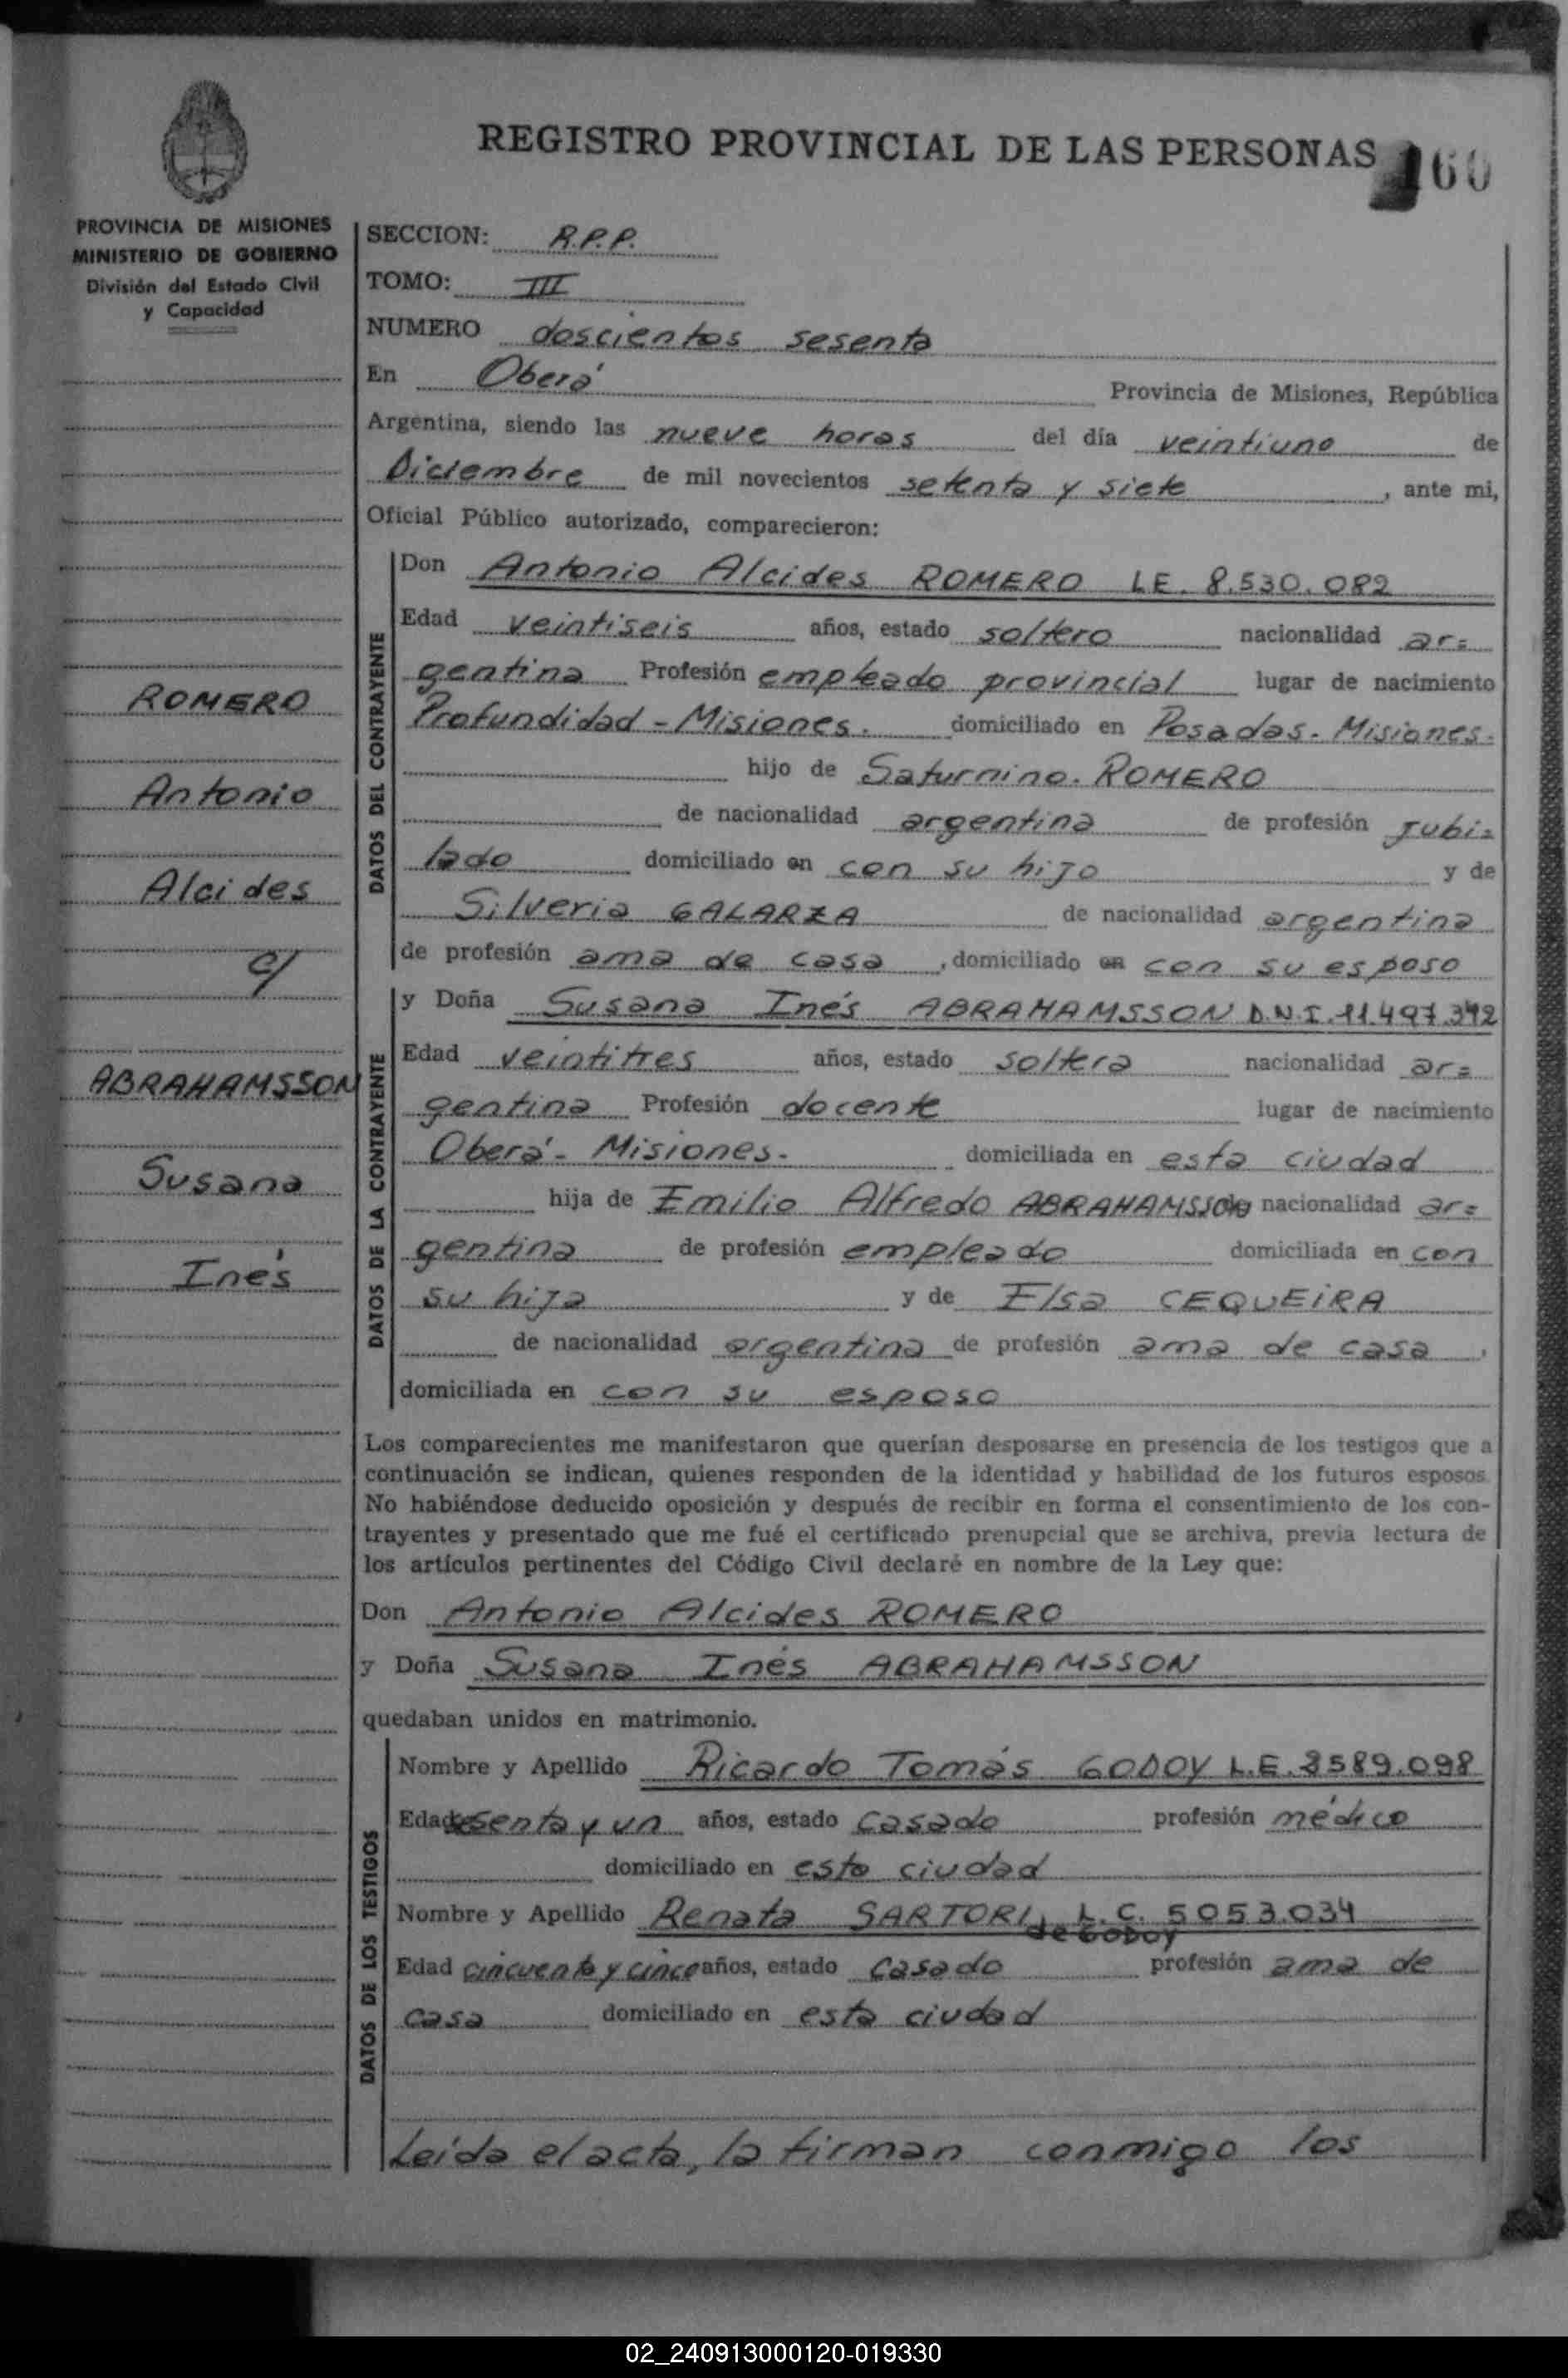 REGISTRO PROVINCIAL DE LAS PERSONAS
60
PROVINCIA DE MISIONES
MINISTERIO DE GOBIERNO
División del Estado Civil
y Capacidad
ROMERO
Antonio
Alcides
c/
ABRAHAMSSON
Susana
Inés
SECCION: R.P.P.
TOMO: III
NUMERO doscientos sesenta
En Oberá Provincia de Misiones, República
Argentina, siendo las nueve horas del día veintiuno de
Diciembre de mil novecientos setenta y siete, ante mi,
Oficial Público autorizado, comparecieron:
DATOS DEL CONTRAYENTE
Don Antonio Alcides ROMERO L.E. 8.530.082
Edad veintiseis años, estado soltero nacionalidad ar=
gentina Profesión empleado provincial lugar de nacimiento
Profundidad - Misiones. domiciliado en Posadas. Misiones.
hijo de Saturnino. ROMERO
de nacionalidad argentina de profesión Jubi=
lado domiciliado en con su hijo y de
Silveria GALARZA de nacionalidad argentina
de profesión ama de casa, domiciliado en con su esposo
DATOS DE LA CONTRAYENTE
y Doña Susana Inés ABRAHAMSSON D.N.I. 11.497.342
Edad veintitres años, estado soltera nacionalidad ar=
gentina Profesión docente lugar de nacimiento
Oberá - Misiones. domiciliada en esta ciudad
hija de Emilio Alfredo ABRAHAMSSON nacionalidad ar=
gentina de profesión empleado domiciliada en con
su hija y de Elsa CEQUEIRA
de nacionalidad argentina de profesión ama de casa,
domiciliada en con su esposo
Los comparecientes me manifestaron que querían desposarse en presencia de los testigos que a
continuación se indican, quienes responden de la identidad y habilidad de los futuros esposos.
No habiéndose deducido oposición y después de recibir en forma el consentimiento de los con-
trayentes y presentado que me fué el certificado prenupcial que se archiva, previa lectura de
los artículos pertinentes del Código Civil declaré en nombre de la Ley que:
Don Antonio Alcides ROMERO
y Doña Susana Inés ABRAHAMSSON
quedaban unidos en matrimonio.
DATOS DE LOS TESTIGOS
Nombre y Apellido Ricardo Tomás GODOY L.E. 2589.098
Edad sesenta y un años, estado casado profesión médico
domiciliado en esta ciudad
Nombre y Apellido Renata SARTORI L.C. 5053.034
de GODOY
Edad cincuenta y cinco años, estado casado profesión ama de
casa domiciliado en esta ciudad
Leída el acta, la firman conmigo los
02_240913000120-019330